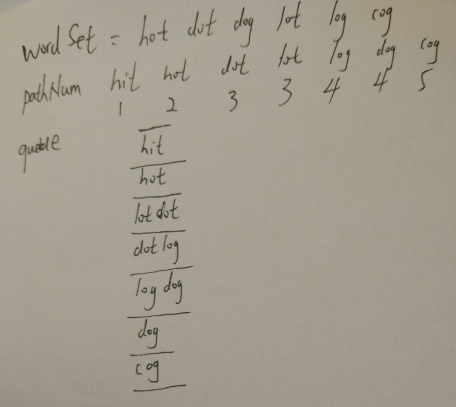 word Set = hot dot dog lot log cog
pathNum hit hot dot lot log dog cog
1 2 3 3 4 4 5
hit
hot
lot dot
dot log
log dog
dog
cog